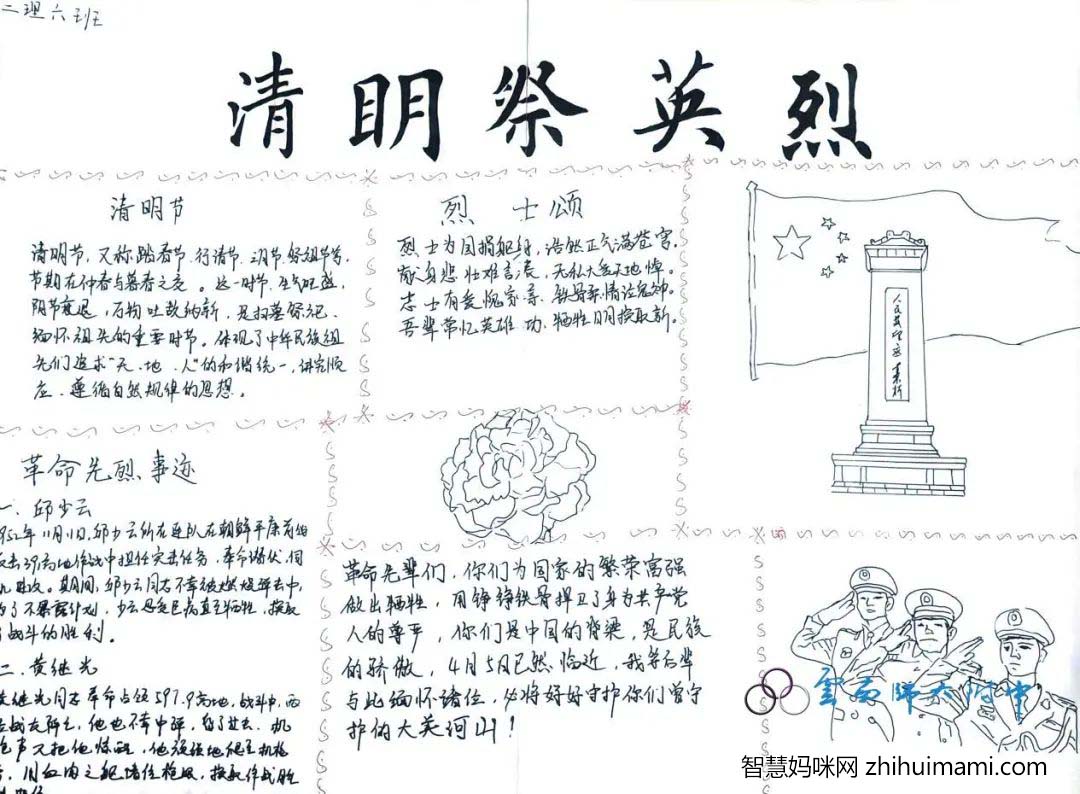 二理六班
清明祭英烈
清明节
清明节，又称踏春节、行清节、三月节、祭祖节等，
节期在仲春与暮春之交。这一时节，生气旺盛，
阴气衰退，万物吐故纳新，是扫墓祭祀、
缅怀祖先的重要时节。体现了中华民族祖
先们追求“天、地、人”的和谐统一，讲究顺
应、遵循自然规律的思想。
烈士颂
烈士为国捐躯身，浩然正气满苍穹。
献身悲壮难言表，无私大爱天地
志士有爱愧家
吾辈常忆英雄功，牺牲日月换取新。
人民英
革命先烈事迹
一、邱少云
52年11月1日，邱少云所在连队在朝鲜平康前
击391高地作战中担任突击任务，奉命潜伏，伺
期间，邱少云同志不幸被燃烧弹击中，
了不暴露计划，少云忍受巨痛直至牺牲，换取
战斗的胜利。
二、黄继光
继光同志奉命占领597.9高地，战斗中，两
战友阵亡，他也不幸中弹，昏了过去，机
声又把他惊醒，他顽强地爬至机枪
，用血肉之躯堵住枪眼，换取作战胜
革命先辈们，你们为国家的繁荣富强
做出牺牲，用铮铮铁骨捍卫了身为共产党
人的尊严，你们是中国的脊梁，是民族
的骄傲，4月5日已然临近，我等后辈
与此缅怀诸位，必将好好守护你们曾守
护的大美河山！
云南师大附中
智慧妈咪网 zhihuimami.com